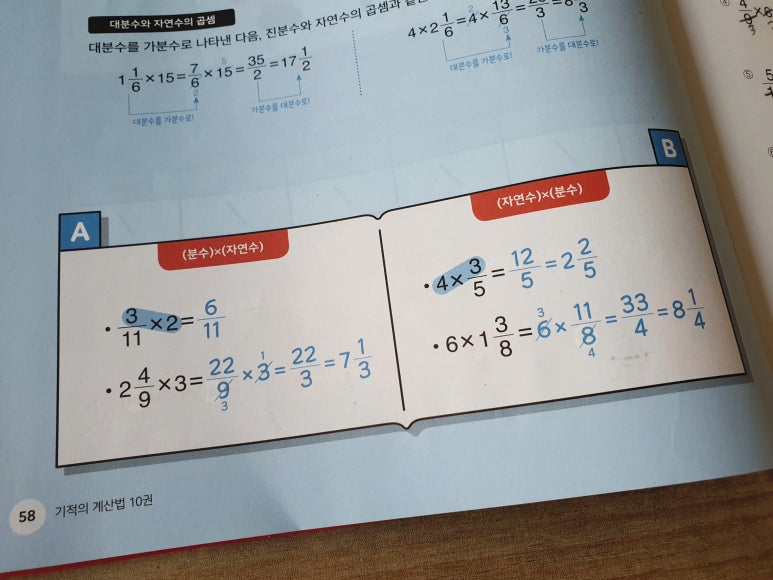 대분수와 자연수의 곱셈
대분수를 가분수로 나타낸 다음, 진분수와 자연수의 곱셈과 같은
1 1/6 × 15 = 7/6 × 15 = 35/2 = 17 1/2
5
2
대분수를 가분수로!
가분수를 대분수로!
4 × 2 1/6 = 4 × 13/6 = /3 = 8 /3
2
3
대분수를 가분수로!
가분수를 대분수로!
A
(분수)×(자연수)
· 3/11 × 2 = 6/11
· 2 4/9 × 3 = 22/9 × 3 = 22/3 = 7 1/3
1
3
B
(자연수)×(분수)
· 4 × 3/5 = 12/5 = 2 2/5
· 6 × 1 3/8 = 6 × 11/8 = 33/4 = 8 1/4
3
4
58
기적의 계산법 10권
④ 4/9 ×
3
⑤ 5/